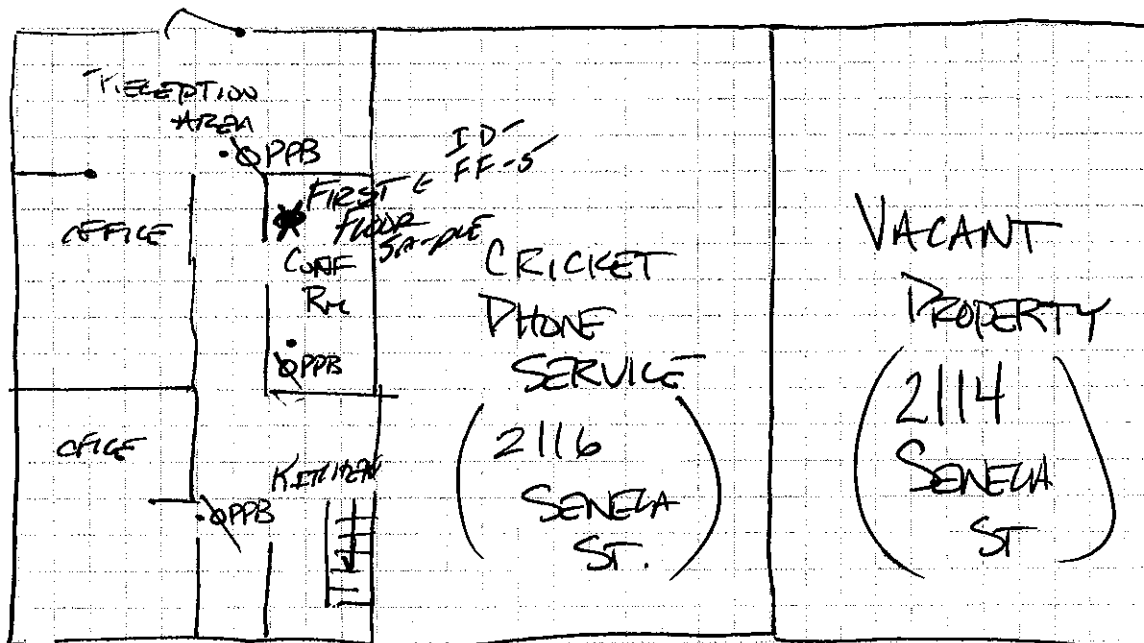 RECEPTION
AREA
ØPPB
ID
FF-5
FIRST
FLOOR
SAMPLE
OFFICE
CONF
RM
ØPPB
OFFICE
KITCHEN
ØPPB
CRICKET
PHONE
SERVICE
(2116
SENECA
ST.)
VACANT
PROPERTY
(2114
SENECA
ST)